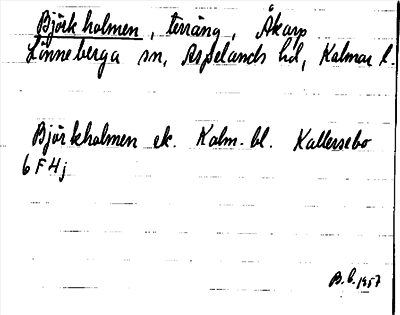 Björkholmen, terräng, Åkarp
Lönneberga sn, Aspelands hd, Kalmar l.
Björkholmen ek. Kalm. bl. Kallersebo
6 F 4 j
B. L. 1957